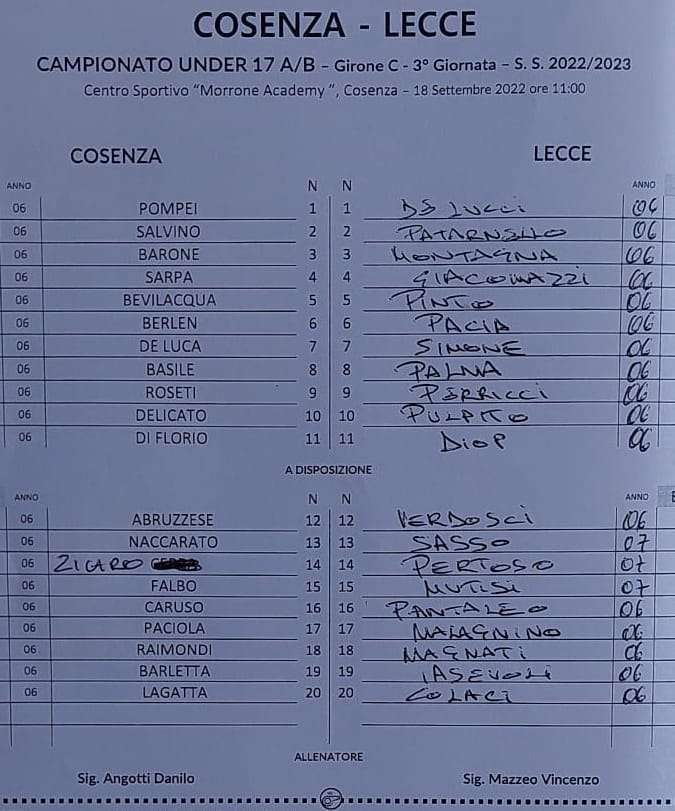 COSENZA - LECCE
CAMPIONATO UNDER 17 A/B – Girone C - 3° Giornata – S. S. 2022/2023
Centro Sportivo “Morrone Academy ”, Cosenza – 18 Settembre 2022 ore 11:00
COSENZA LECCE
ANNO N N ANNO
06 POMPEI 1 1 DE LUCCI 06
06 SALVINO 2 2 PATARNELLO 06
06 BARONE 3 3 MONTAGNA 06
06 SARPA 4 4 GIACOMAZZI 06
06 BEVILACQUA 5 5 PINTO 06
06 BERLEN 6 6 PACIA 06
06 DE LUCA 7 7 SIMONE 06
06 BASILE 8 8 PALMA 06
06 ROSETI 9 9 PERRICCI 06
06 DELICATO 10 10 PULPITO 06
06 DI FLORIO 11 11 DIOP 06
A DISPOSIZIONE
ANNO N N ANNO
06 ABRUZZESE 12 12 VERDOSCI 06
06 NACCARATO 13 13 SASSO 07
06 ZICARO 14 14 PERTOSO 07
06 FALBO 15 15 MUTISI 07
06 CARUSO 16 16 PANTALEO 06
06 PACIOLA 17 17 MALAGNINO 06
06 RAIMONDI 18 18 MAGNATI 06
06 BARLETTA 19 19 IASEVOLI 06
06 LAGATTA 20 20 COLACI 06
ALLENATORE
Sig. Angotti Danilo Sig. Mazzeo Vincenzo